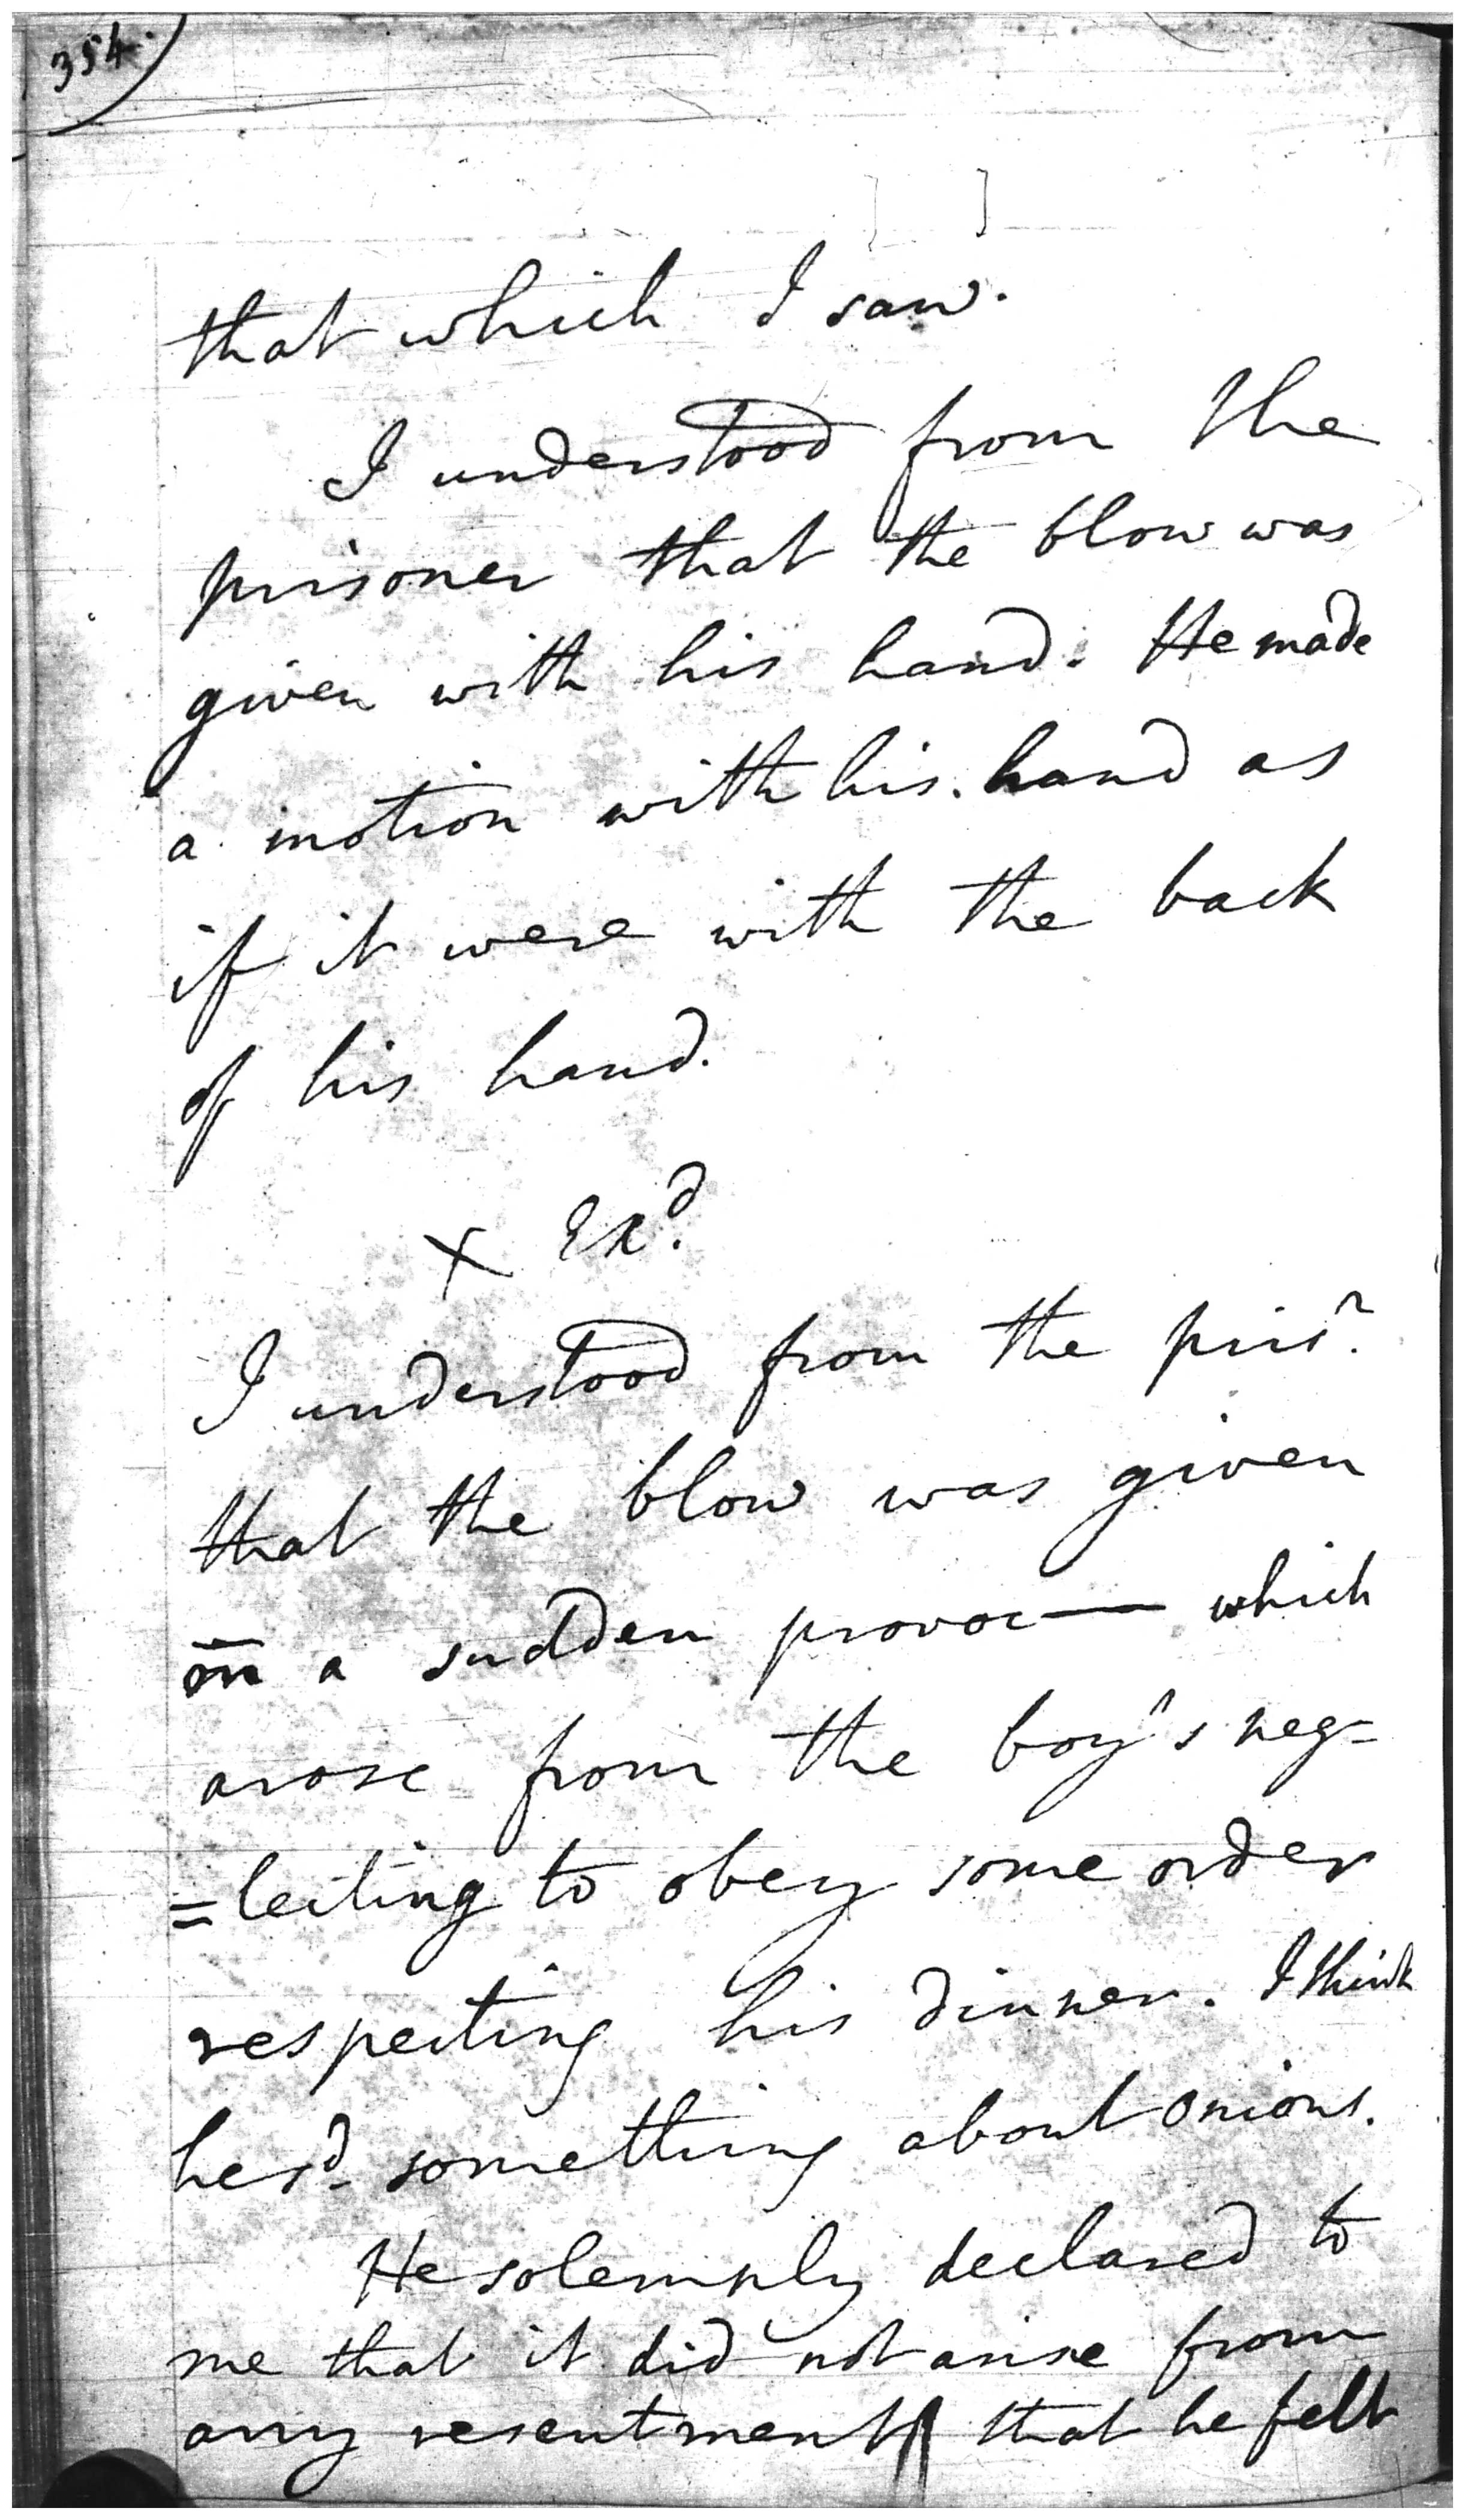 354.
that which I saw.
I understood from the
prisoner that the blow was
given with his hand. He made
a motion with his hand as
if it were with the back
of his hand.
X Exd.
I understood from the prisr.
that the blow was given
on a sudden provoc— which
arose from the boy's neg=
=lecting to obey some order
respecting his dinner. I think
he sd. something about onions.
He solemnly declared to
me that it did not arise from
any resentment that he felt